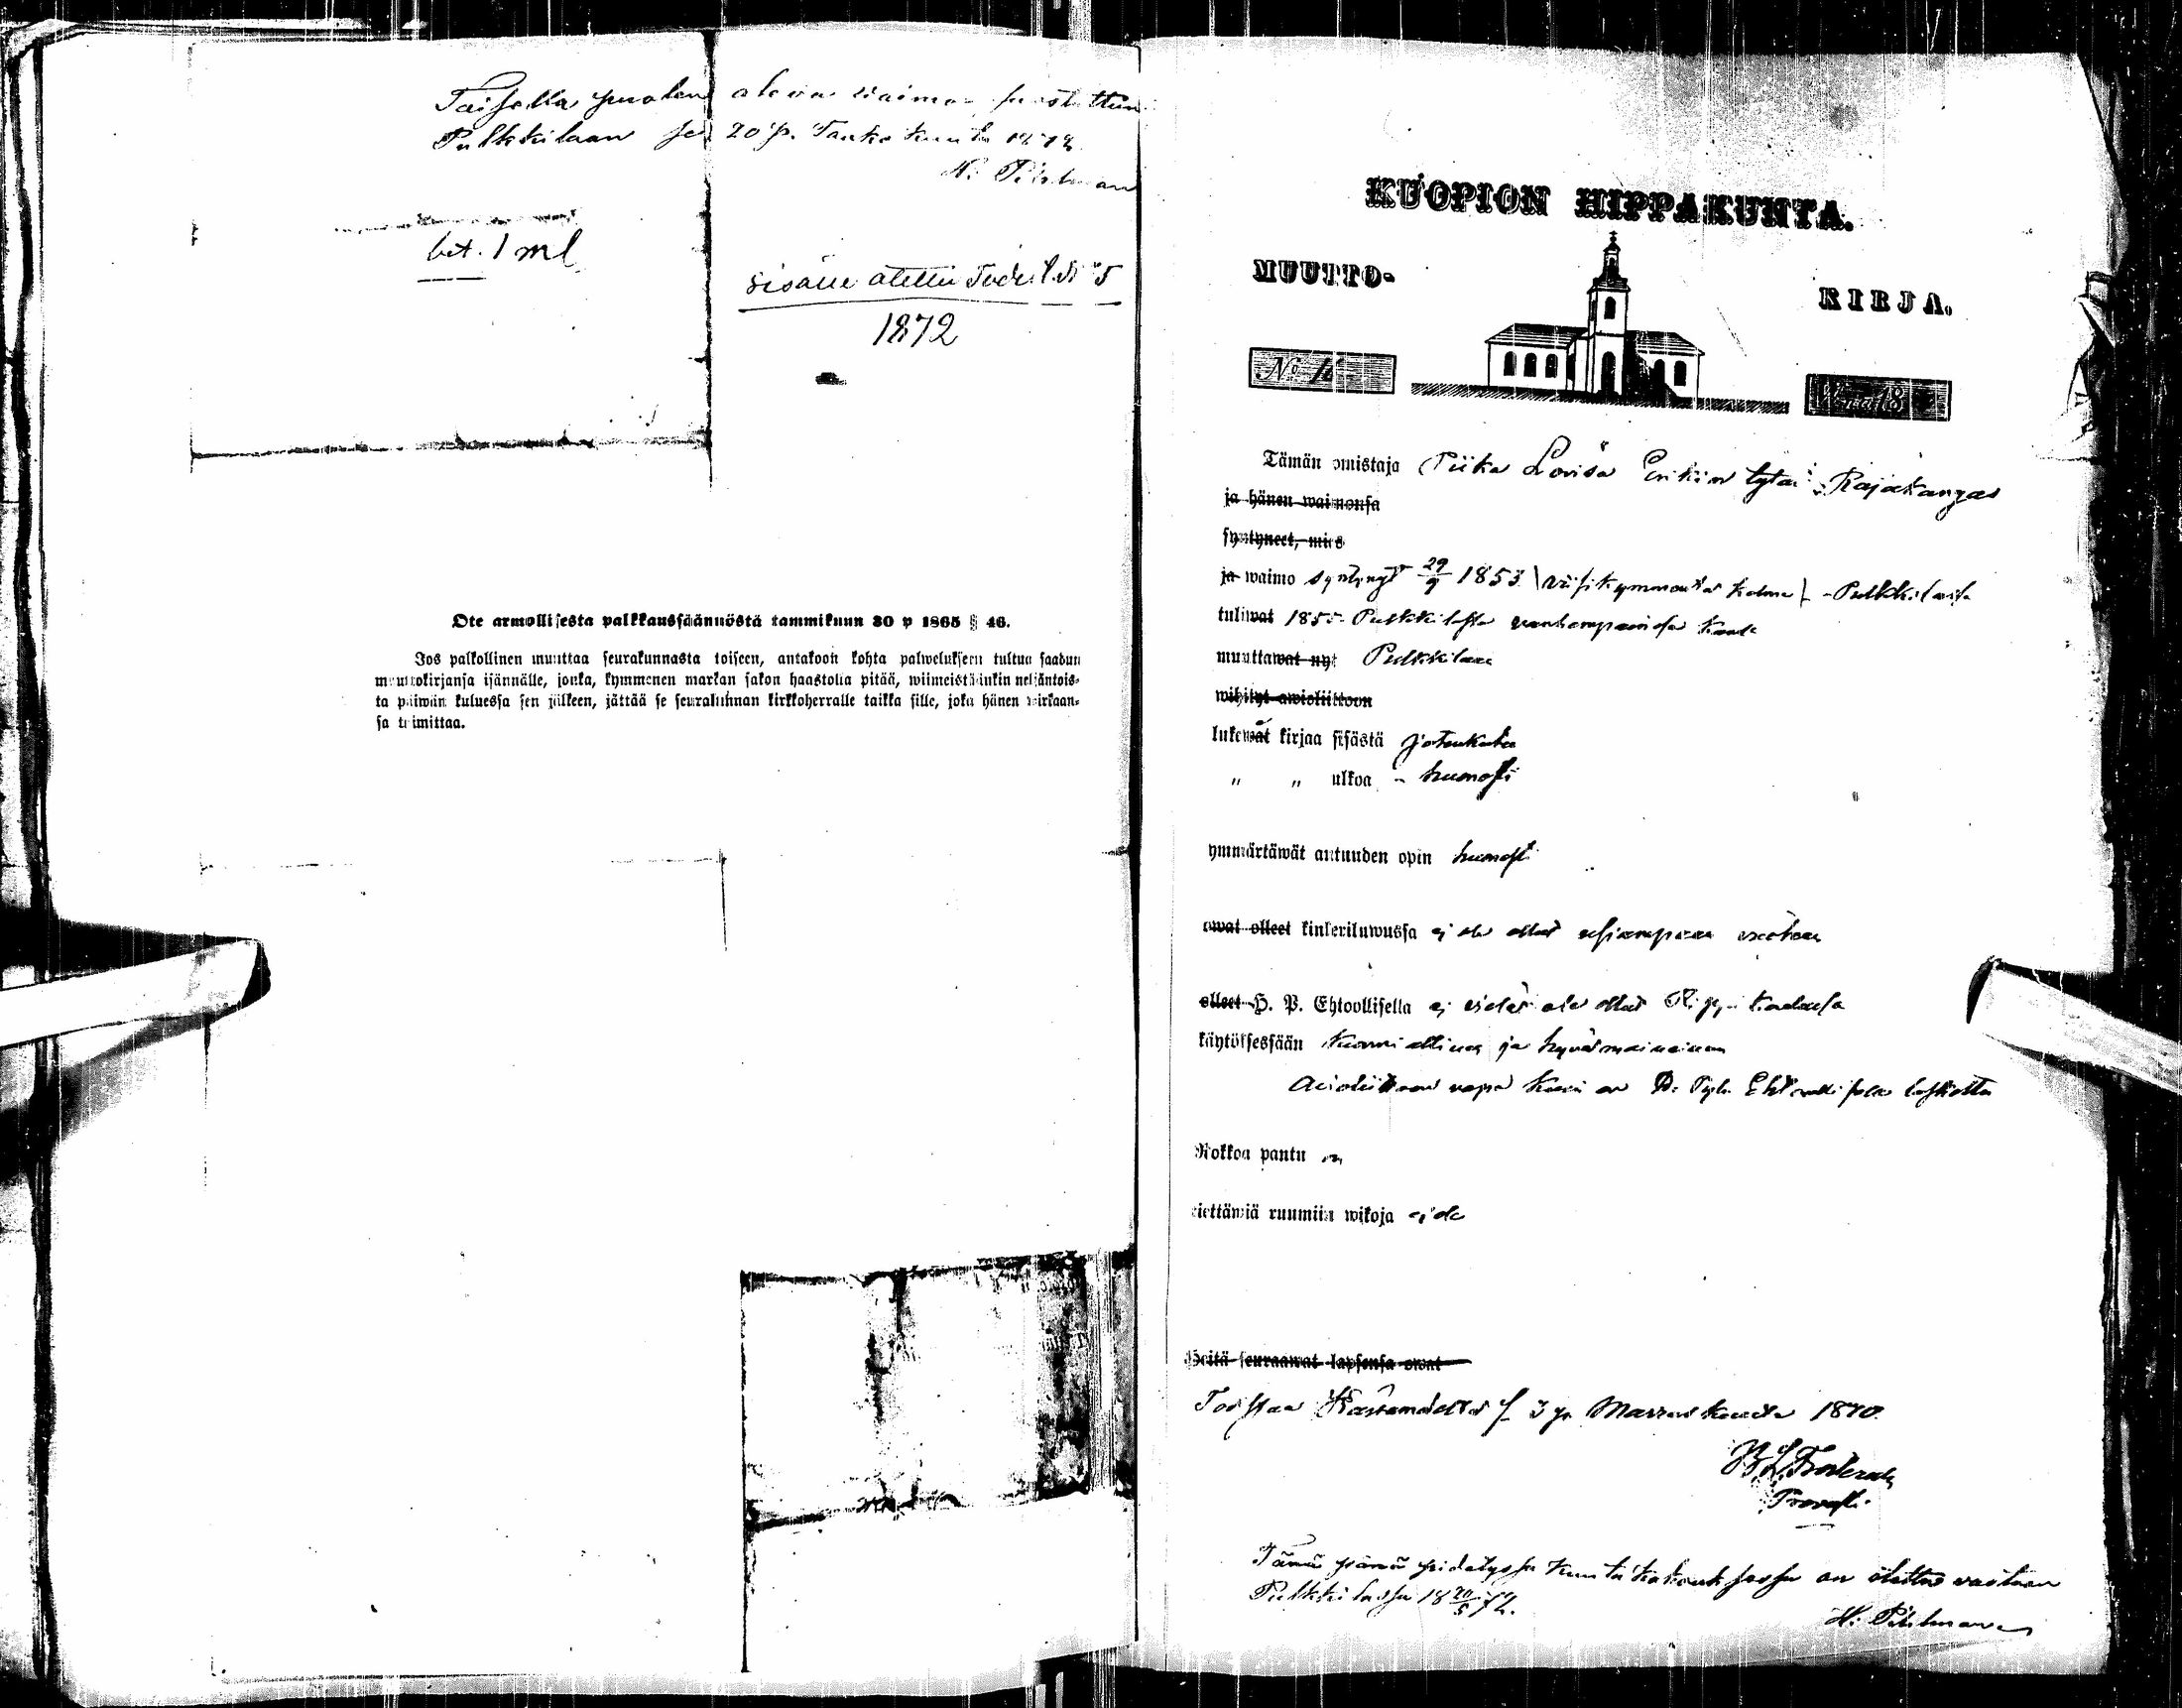 Toisella puolen olevia vaimo
Pulkkilaan se 20 p. Touko kuuta 1872
H. Pihlman
bet. 1 ml
sisälle otettu Tod. l. N:o 5
1872
Ote armollisesta palkkaussäännöstä tammikuun 30 p 1865 § 46.
Jos palkollinen muuttaa seurakunnasta toiseen, antakoon kohta palwelukseen tultua saadun
muuttokirjansa isännälle, jonka, kymmenen markan sakon haastolla pitää, wiimeistäänkin neljäntois-
ta päiwän kuluessa sen jälkeen, jättää se seurakunnan kirkkoherralle taikka sille, joka hänen wirkaan-
sa toimittaa.
KUOPION HIPPAKUNTA.
MUUTTO-
KIRJA.
No
Wuonna 18
Tämän omistaja Piika Lovisa Erikin tytär Rajakangas
ja hänen waimonsa
syntyneet, mies
ja waimo syntynyt 29/9 1853 / viisikymmentä kolme / Pulkkilassa
tuliwat 1855 Pulkkilasta vanhempainsa kanssa
muuttawat nyt Pulkkilaan
wihityt awioliittoon
lukewat kirjaa sisästä jotenkuten
" " ulkoa huonosti
ymmärtäwät autuuden opin huonosti
owat olleet kinkeriluwussa ej ole ollut useampaan vuoteen
olleet H. P. Ehtoollisella ej vielä ole ollut Rippi koulussa
käytöksessään kunniallinen ja hyvämaineinen
Avioliittoon vapa kuin on H. Ehtoollisella laskettu
Rokkoa pantu on
tiettäwiä ruumiin wikoja ej ole
Heitä seuraawat lapsensa owat
Toistaa Kärsämäellä s. 3 p. Marraskuuta 1870.
Provasti
Tänä päivänä pidetyssä kuntakokouksessa on otettu vastaan
Pulkkilassa 18 20/5 72.
H. Pihlman